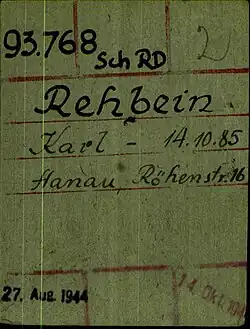 93.768
Sch RD
2
Rehbein.
Karl - 14.10.85
Hanau, Röhenstr. 16
27. Aug. 1944
Okt.